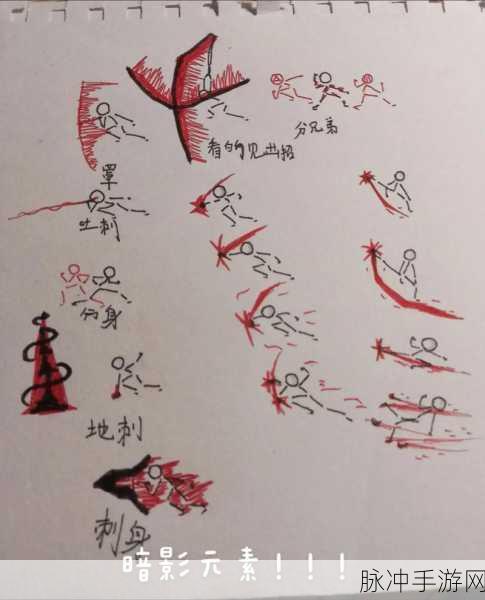 分兄弟
看的见出招
罩
吐刺
分身
地刺
刺身
暗影元素！！！
脉冲手游网